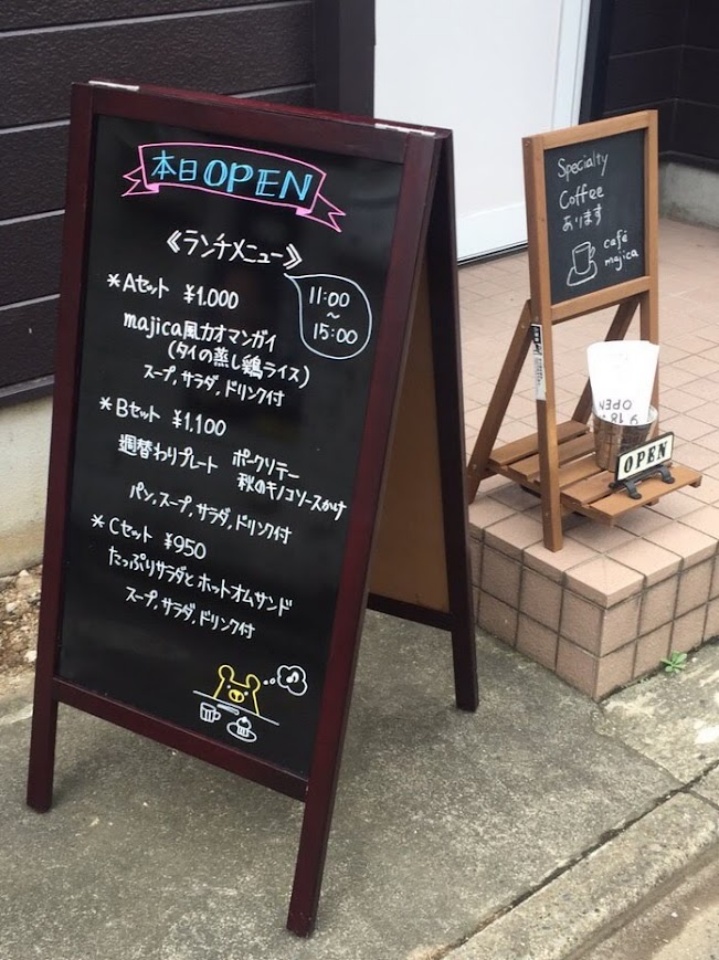 本日OPEN
《ランチメニュー》
11:00
～
15:00
*Aセット ¥1.000
majica風カオマンガイ
(タイの蒸し鶏ライス)
スープ,サラダ,ドリンク付
*Bセット ¥1.100
週替わりプレート ポークソテー
秋のキノコソースかけ
パン,スープ,サラダ,ドリンク付
*Cセット ¥950
たっぷりサラダとホットオムサンド
スープ,サラダ,ドリンク付
Specialty
Coffee
あります
café
majica
OPEN
OPEN